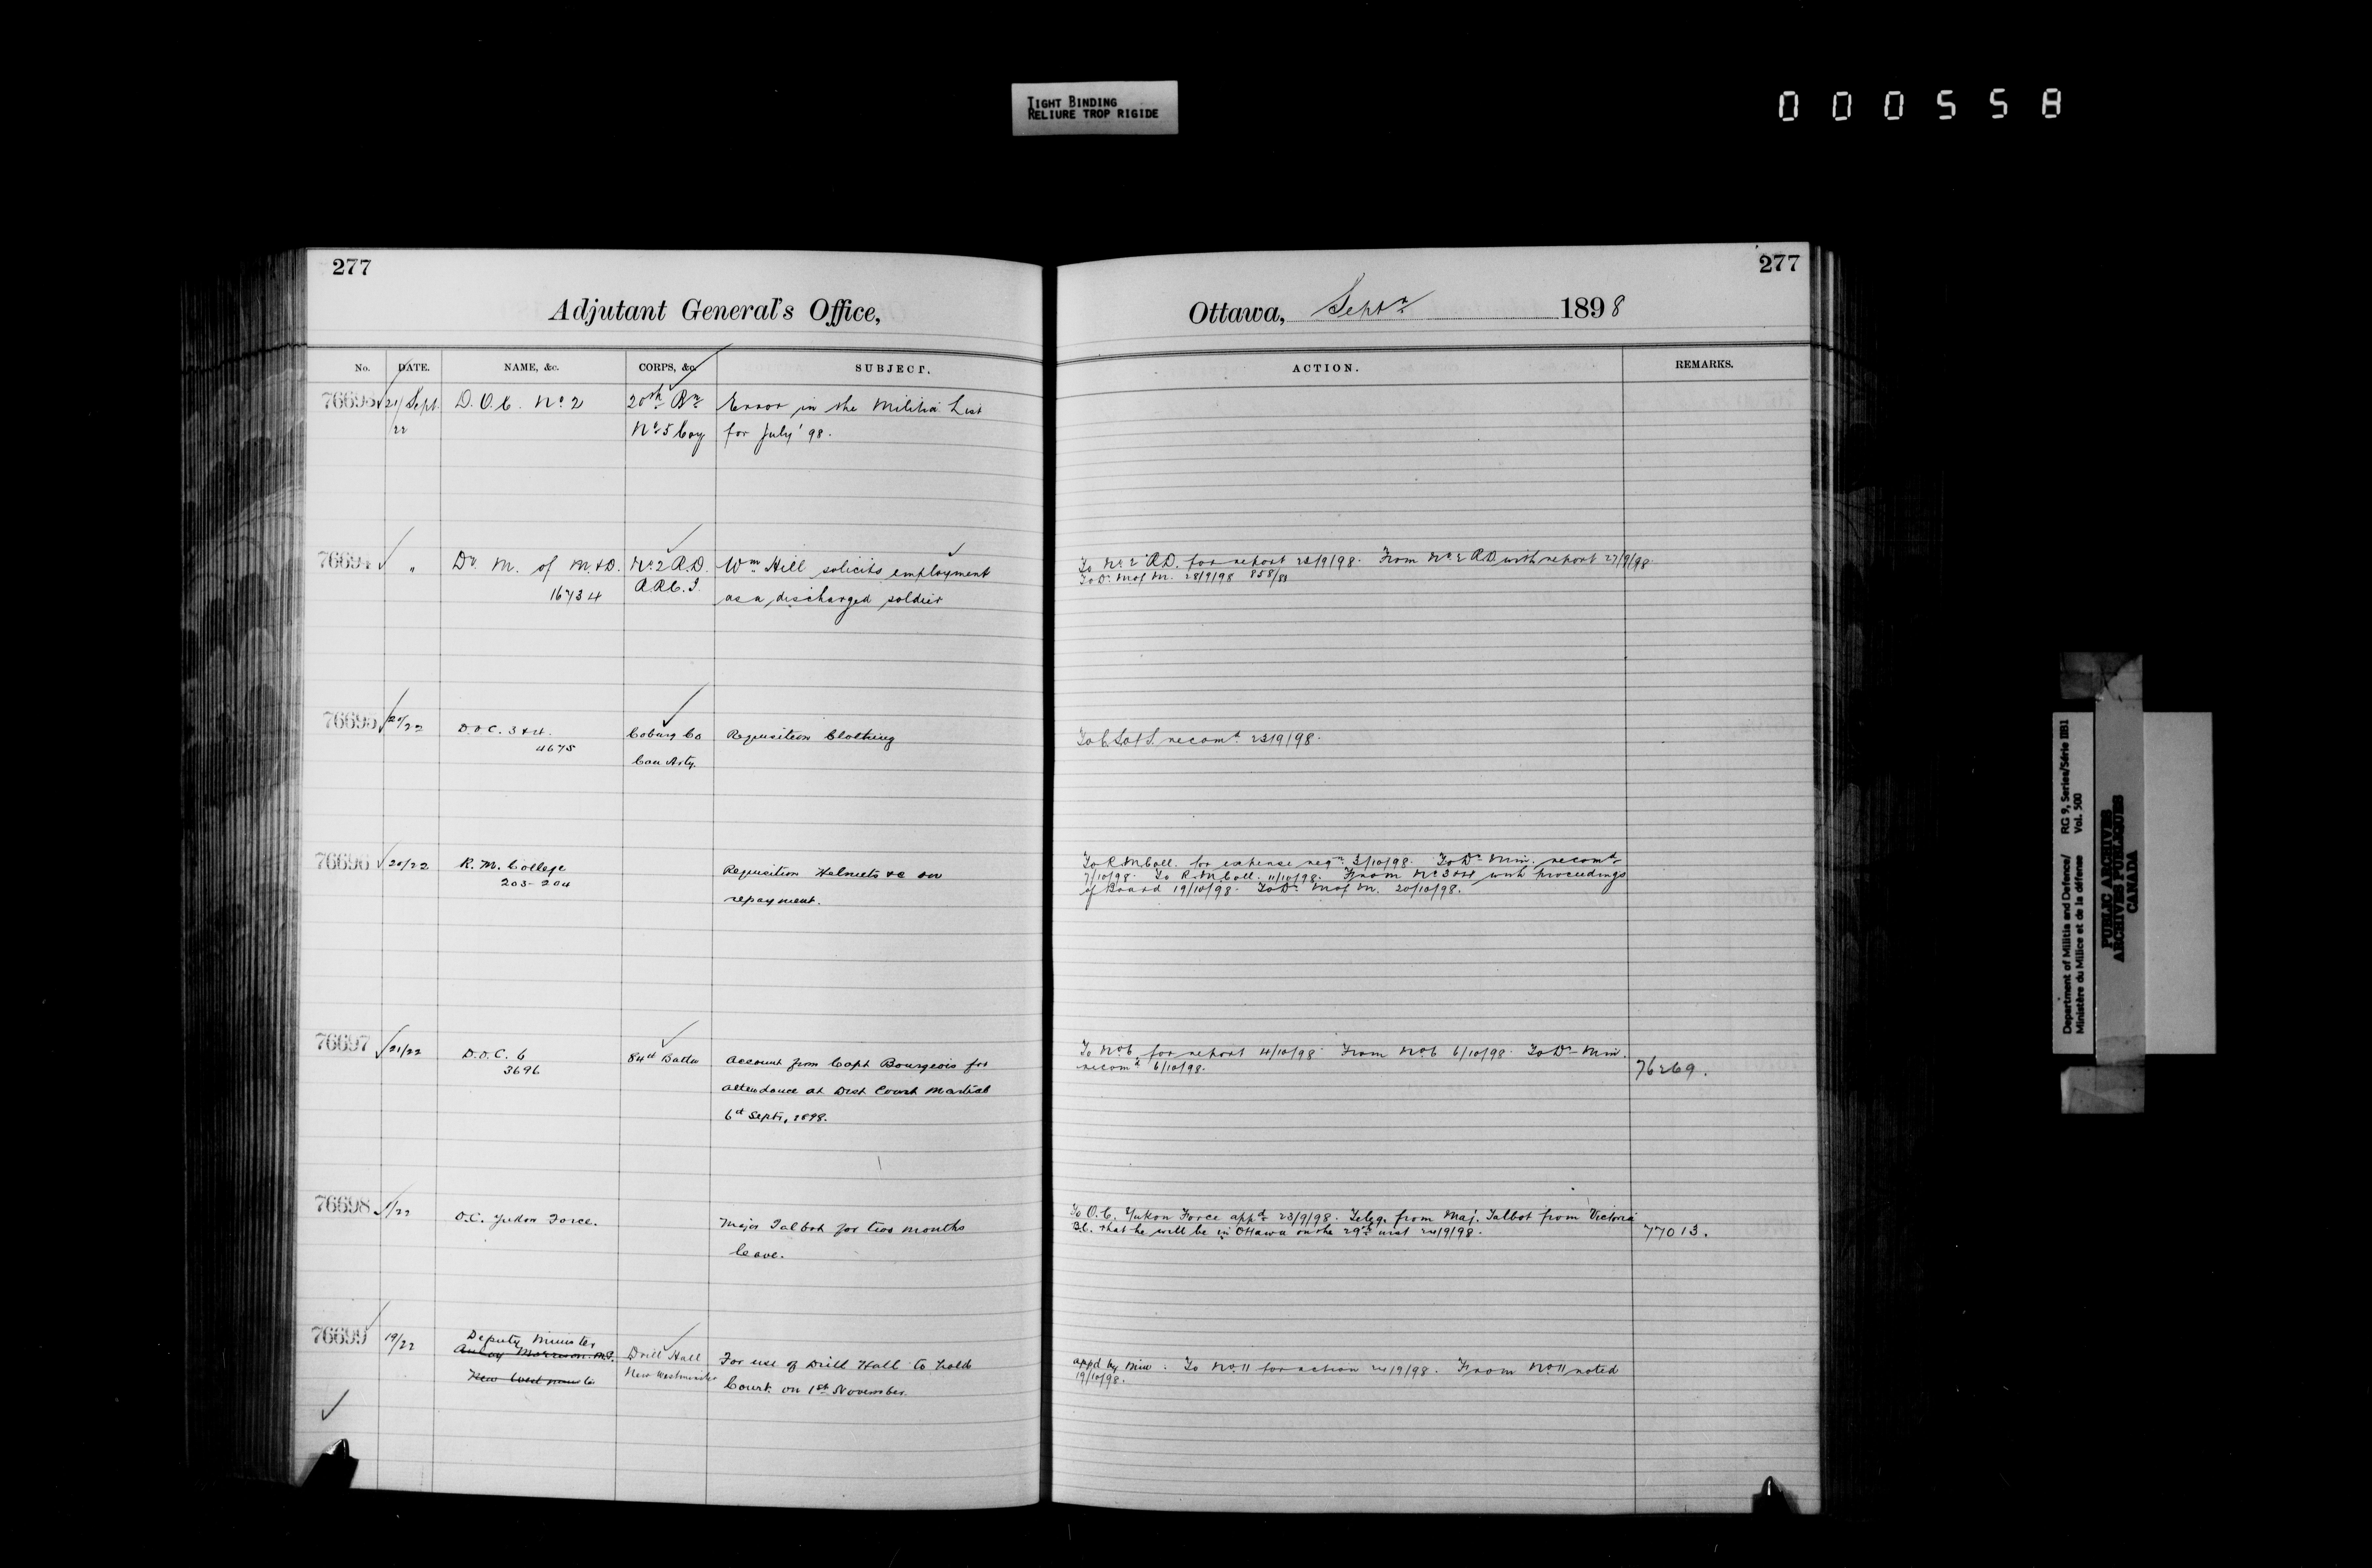 TIGHT BINDING
RELIURE TROP RIGIDE
000558
277
Adjutant General's Office,
No. DATE. NAME, &c. CORPS, &c. SUBJECT.
76693 21/Sept. D.O.C. No 2 20th Bn Error in the Militia List
22 No 5 Coy for July '98.
76694 " Dy. M. of M. & D. No 2 R.D. Wm Hill solicits employment
16734 R.R.C.I. as a discharged soldier
76695 20/22 D.O.C. 3 & 4. Coburg Co Requisition Clothing
4675 Can Arty.
76696 20/22 R. M. College Requisition Helmets &c on
203-204 repayment.
76697 21/22 D.O.C. 6 84th Battn Account from Capt Bourgeois for
3696 attendance at Dist Court Martial
6th Septr, 1898.
76698 1/22 O.C. Yukon Force. Major Talbot for two months
leave.
76699 19/22 Deputy Minister
Aulay Morrison M.P. Drill Hall For use of Drill Hall to hold
New Westminster New Westminster Court on 1st November.
277
Ottawa, Septr 1898
ACTION. REMARKS.
To No 2 R.D. for report 23/9/98. From No 2 R.D. with report 27/9/98
To Dy. M of M. 28/9/98
To C. S. of S. recomd 23/9/98.
To R.M. Coll. for expense reqn 3/10/98. To Dy Min. recomd
7/10/98. To R.M. Coll. 11/10/98. From No 3 & 4 with proceedings
of Board 19/10/98. To Dy. M of M. 20/10/98.
To No 6 for report 4/10/98. From No 6 6/10/98. To Dy Min.
recomd 6/10/98. 76269.
To O.C. Yukon Force appd 23/9/98. Teleg. from Maj. Talbot from Victoria
B.C. that he will be in Ottawa on the 29th inst 24/9/98. 77013.
appd by Min: To No 11 for action 24/9/98. From No 11 noted
19/10/98.
Department of Militia and Defence/ RG 9, Series/Série IIB1
Ministère du Milice et de la défense Vol. 500
PUBLIC ARCHIVES
ARCHIVES PUBLIQUES
CANADA